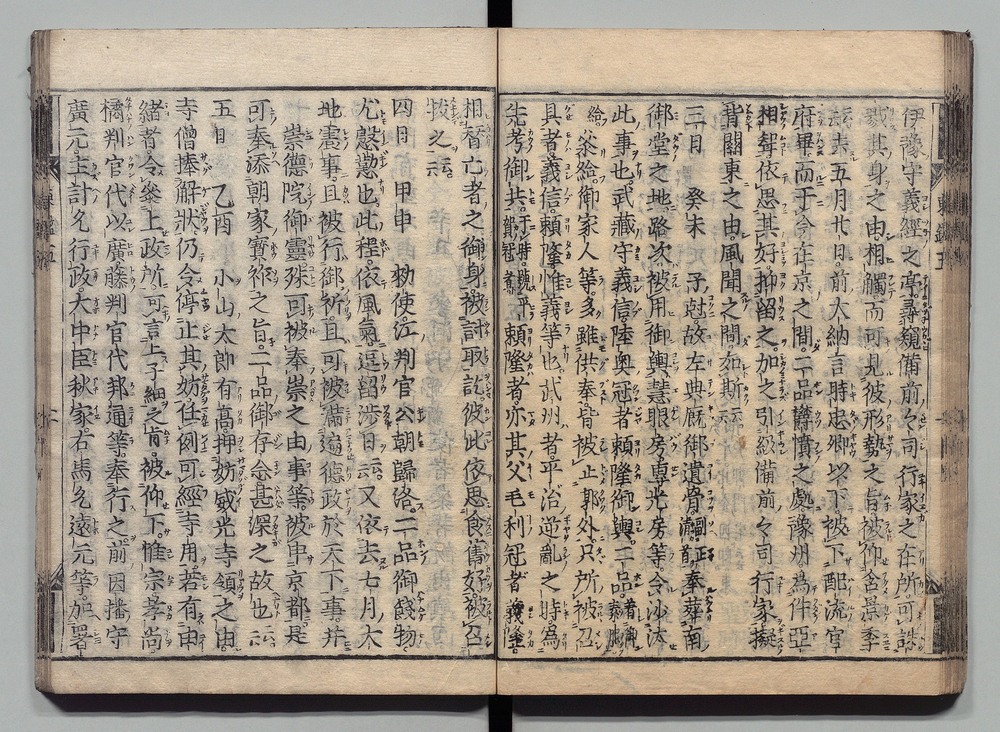 伊豫守義經之亭尋窺備前々司行家之在所可誅
戮其身之由相觸而可見彼形勢之旨被仰含景季
云去五月廿日前大納言時忠卿以下被下配流官
府畢而于今在京之間二品欝憤之處豫州爲件亞
相聟依思其好抑留之加之引級備前々司行家擬
背關東之由風聞之間如斯云々
三日 癸未 子尅故左典厩御遺骨副正清首奉葬南
御堂之地路次被用御輿慧眼房専光房等令沙汰
此事也武藏守義信陸奥冠者頼隆御輿二品着素服
給参給御家人等多雖供奉皆被止郭外只所被召
具者義信頼隆惟義等也武州者平治逆亂之時爲
先考御共于時號平賀冠者頼隆者亦其父毛利冠者義隆
相替亡者之御身被討取訖彼此依思食舊好被召
抜之云々
四日 甲申 勅使江判官公朝歸洛二品御餞物
尤慇懃也此程依風氣逗留渉日云々又依去七月大
地震事且被行御祈且可被満遍德政於天下事并
崇德院御靈殊可被奉崇之由事等被申京都是
可奉添朝家寳祚之旨二品御存念甚深之故也云々
五日 乙酉 小山太郎有高押妨威光寺領之由
寺僧捧解状仍令停止其妨任例可經寺用若有由
緒者令参上政所可言上子細之旨被仰下惟宗孝尚
橘判官代以廣藤判官代邦通等奉行之前因播守
廣元主計允行政大中臣秋家右馬允遠元等加署